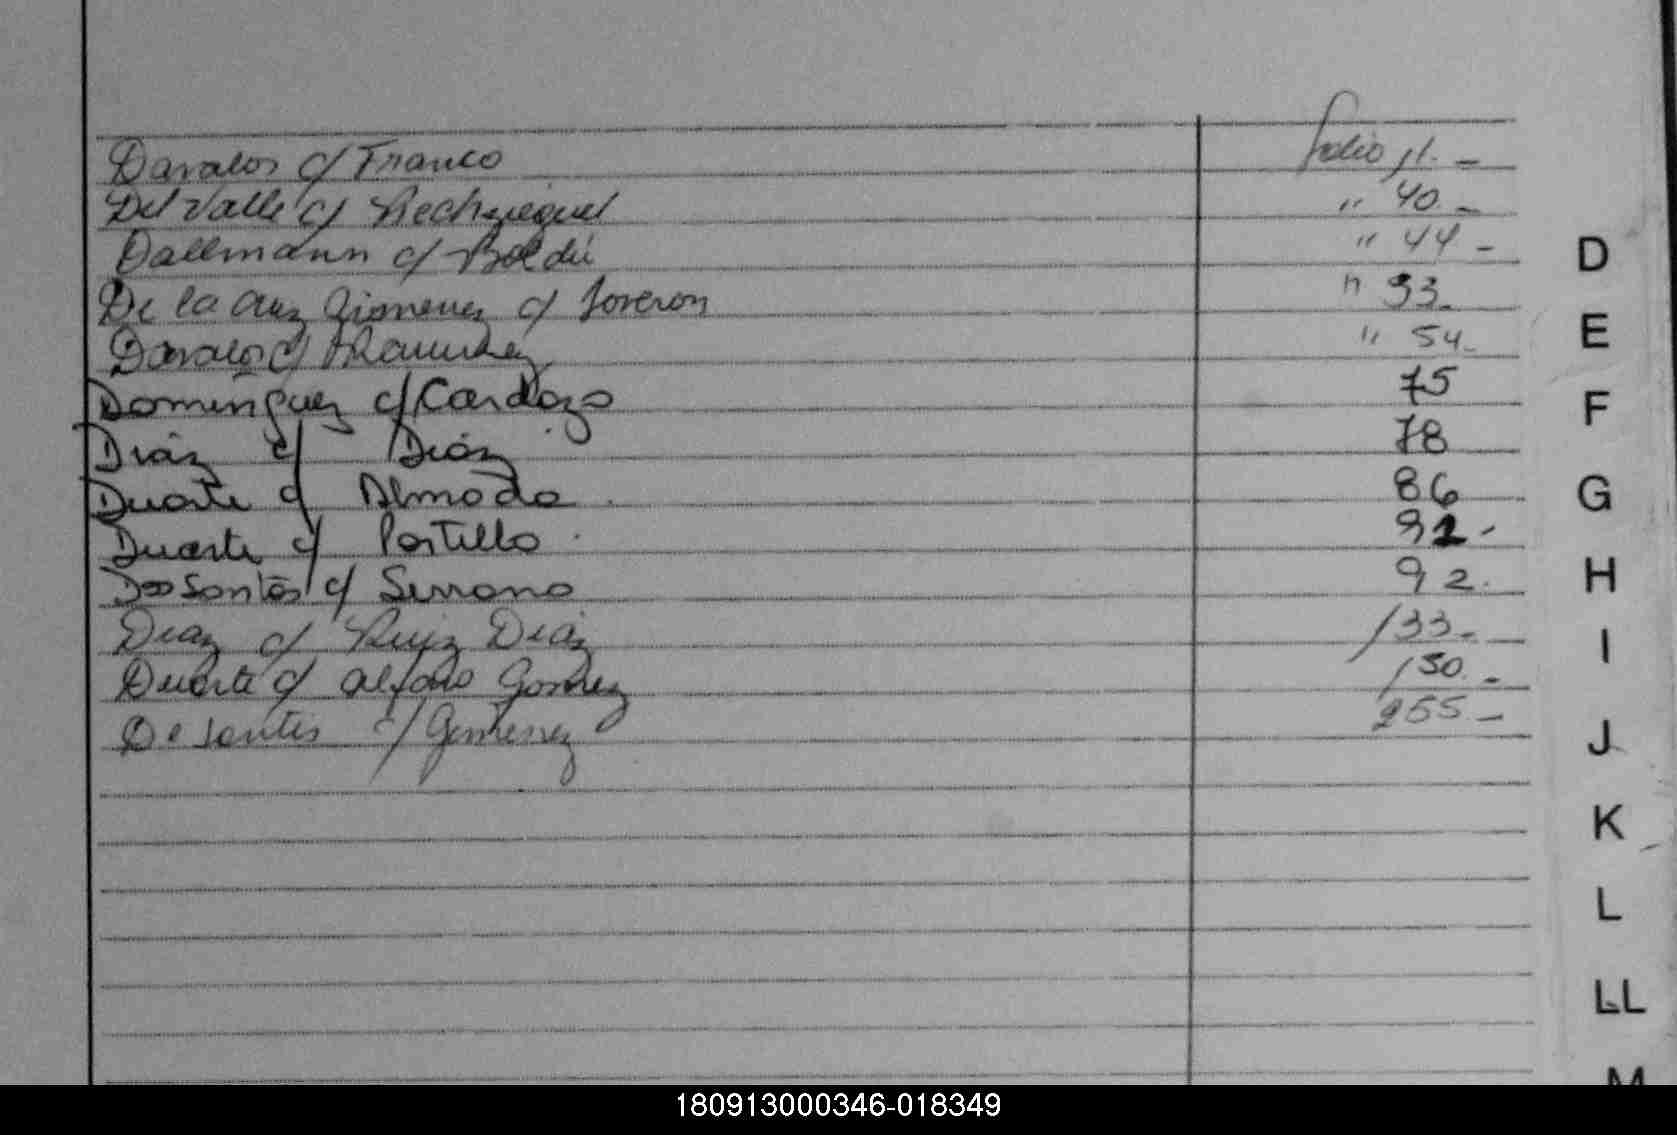 Davalos c/ Franco folio 11. -
Del Valle c/ " 40. -
Dallmann c/ Boldú " 44 -
De la Cruz Gimenez c/ " 93.
Davalos c/ Ramirez " 54.
Dominguez c/ Cardozo 75
Diáz c/ Dióz 78
Duarte c/ Almada. 86
Duarte c/ Portillo. 91.-
Dos Santos c/ Serrano 92.
Diaz c/ Ruiz Diáz 133.-
Duarte c/ Alfaro Gomez 150. -
De Santis c/ Gimenez 255. -
D
E
F
G
H
I
J
K
L
LL
M
180913000346-018349